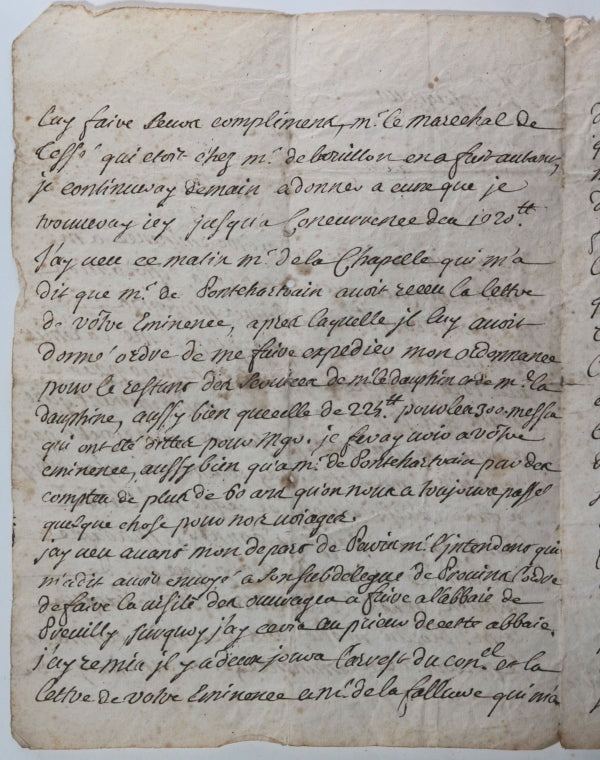 luy faire leurs compliments, mr. le marechal de
Tessé qui etoit chez mr. de bouillon en a fait autant,
je continueray demain a donner a ceux que je
trouveray icy jusqu'a Concurrence des 1020tt.
J'ay veu ce matin mr. de la Chapelle qui m'a
dit que mr. de Pontchartrain avoit receu la lettre
de vôtre Eminence, apres laquelle il luy avoit
donné ordre de me faire expedier mon ordonnance
pour le restant des services de mr. le dauphin et de me. la
dauphine, aussy bien que celle de 225tt. pour les 300 messes
qui ont été dittes pour Mgr. je feray voir a vôtre
eminence, aussy bien qu'a mr. de Pontchartrain par des
comptes de plus de 60 ans qu'on nous a toujours passé
quelque chose pour nos voiages.
j'ay veu avant mon depart de Paris mr. l'intendant qui
m'a dit avoir envoyé a son subdelegué de Provins l'ordre
de faire la visite des ouvrages a faire a l'abbaie de
Preuilly, surquoy j'ay ecris au prieur de cette abbaie.
j'ay remis il y a deux jours l'arrest du conel. et la
lettre de votre Eminence a mr. de la falluere qui m'a